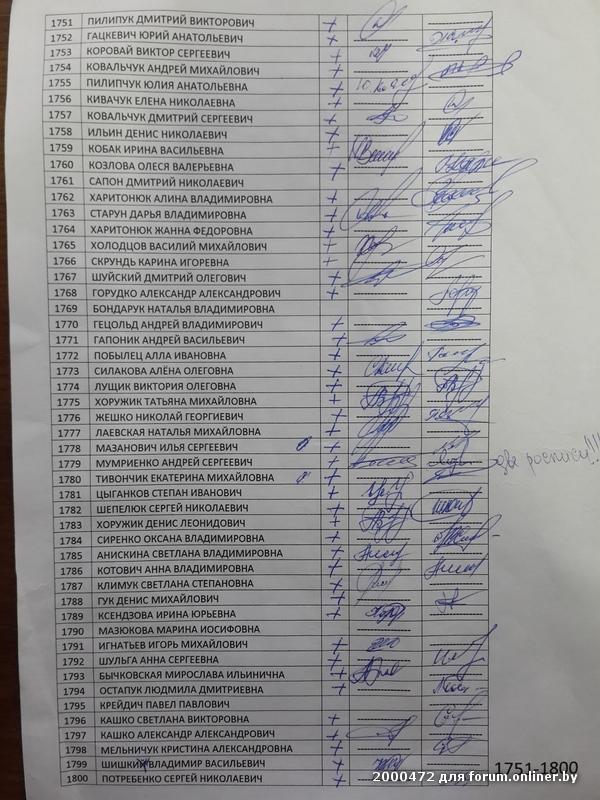 1751 ПИЛИПУК ДМИТРИЙ ВИКТОРОВИЧ +
1752 ГАЦКЕВИЧ ЮРИЙ АНАТОЛЬЕВИЧ +
1753 КОРОВАЙ ВИКТОР СЕРГЕЕВИЧ +
1754 КОВАЛЬЧУК АНДРЕЙ МИХАЙЛОВИЧ +
1755 ПИЛИПЧУК ЮЛИЯ АНАТОЛЬЕВНА +
1756 КИВАЧУК ЕЛЕНА НИКОЛАЕВНА +
1757 КОВАЛЬЧУК ДМИТРИЙ СЕРГЕЕВИЧ +
1758 ИЛЬИН ДЕНИС НИКОЛАЕВИЧ +
1759 КОБАК ИРИНА ВАСИЛЬЕВНА +
1760 КОЗЛОВА ОЛЕСЯ ВАЛЕРЬЕВНА +
1761 САПОН ДМИТРИЙ НИКОЛАЕВИЧ
1762 ХАРИТОНЮК АЛИНА ВЛАДИМИРОВНА +
1763 СТАРУН ДАРЬЯ ВЛАДИМИРОВНА +
1764 ХАРИТОНЮК ЖАННА ФЕДОРОВНА +
1765 ХОЛОДЦОВ ВАСИЛИЙ МИХАЙЛОВИЧ +
1766 СКРУНДЬ КАРИНА ИГОРЕВНА +
1767 ШУЙСКИЙ ДМИТРИЙ ОЛЕГОВИЧ +
1768 ГОРУДКО АЛЕКСАНДР АЛЕКСАНДРОВИЧ +
1769 БОНДАРУК НАТАЛЬЯ ВЛАДИМИРОВНА
1770 ГЕЦОЛЬД АНДРЕЙ ВЛАДИМИРОВИЧ +
1771 ГАПОНИК АНДРЕЙ ВАСИЛЬЕВИЧ +
1772 ПОБЫЛЕЦ АЛЛА ИВАНОВНА +
1773 СИЛАКОВА АЛЁНА ОЛЕГОВНА +
1774 ЛУЩИК ВИКТОРИЯ ОЛЕГОВНА +
1775 ХОРУЖИК ТАТЬЯНА МИХАЙЛОВНА +
1776 ЖЕШКО НИКОЛАЙ ГЕОРГИЕВИЧ +
1777 ЛАЕВСКАЯ НАТАЛЬЯ МИХАЙЛОВНА +
1778 МАЗАНОВИЧ ИЛЬЯ СЕРГЕЕВИЧ +
1779 МУМРИЕНКО АНДРЕЙ СЕРГЕЕВИЧ + две росписи!!!
1780 ТИВОНЧИК ЕКАТЕРИНА МИХАЙЛОВНА +
1781 ЦЫГАНКОВ СТЕПАН ИВАНОВИЧ +
1782 ШЕПЕЛЮК СЕРГЕЙ НИКОЛАЕВИЧ +
1783 ХОРУЖИК ДЕНИС ЛЕОНИДОВИЧ +
1784 СИРЕНКО ОКСАНА ВЛАДИМИРОВНА +
1785 АНИСКИНА СВЕТЛАНА ВЛАДИМИРОВНА +
1786 КОТОВИЧ АННА ВЛАДИМИРОВНА +
1787 КЛИМУК СВЕТЛАНА СТЕПАНОВНА +
1788 ГУК ДЕНИС МИХАЙЛОВИЧ +
1789 КСЕНДЗОВА ИРИНА ЮРЬЕВНА +
1790 МАЗЮКОВА МАРИНА ИОСИФОВНА
1791 ИГНАТЬЕВ ИГОРЬ МИХАЙЛОВИЧ +
1792 ШУЛЬГА АННА СЕРГЕЕВНА +
1793 БЫЧКОВСКАЯ МИРОСЛАВА ИЛЬИНИЧНА +
1794 ОСТАПУК ЛЮДМИЛА ДМИТРИЕВНА +
1795 КРЕЙДИЧ ПАВЕЛ ПАВЛОВИЧ
1796 КАШКО СВЕТЛАНА ВИКТОРОВНА +
1797 КАШКО АЛЕКСАНДР АЛЕКСАНДРОВИЧ +
1798 МЕЛЬНИЧУК КРИСТИНА АЛЕКСАНДРОВНА +
1799 ВЛАДИМИР ВАСИЛЬЕВИЧ +
1800 ПОТРЕБЕНКО СЕРГЕЙ НИКОЛАЕВИЧ +
1751-1800
2000472 для forum.onliner.by